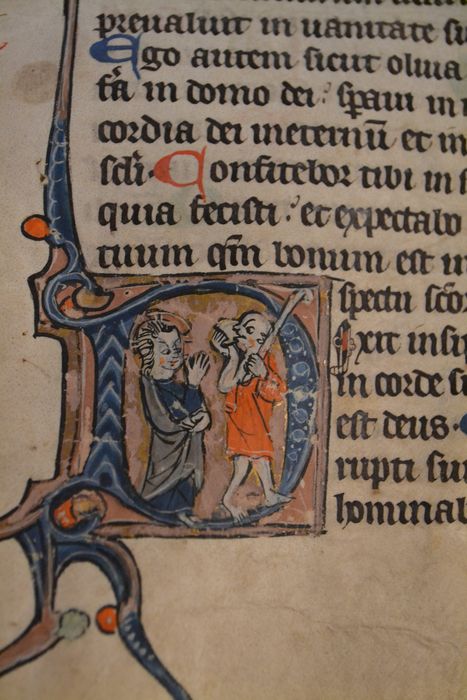 preualuit in uanitate su
Ego autem sicut oliua
fc̃a in domo dei: sp̃aui in
cordia dei in eternũ et in
sc̃li. Confitebor tibi in s
quia fecisti: et expectabo
tuum qm̃ bonum est in
spectu sc̃o
Dixit insip
in corde s
est deus.
rupti su
hominab